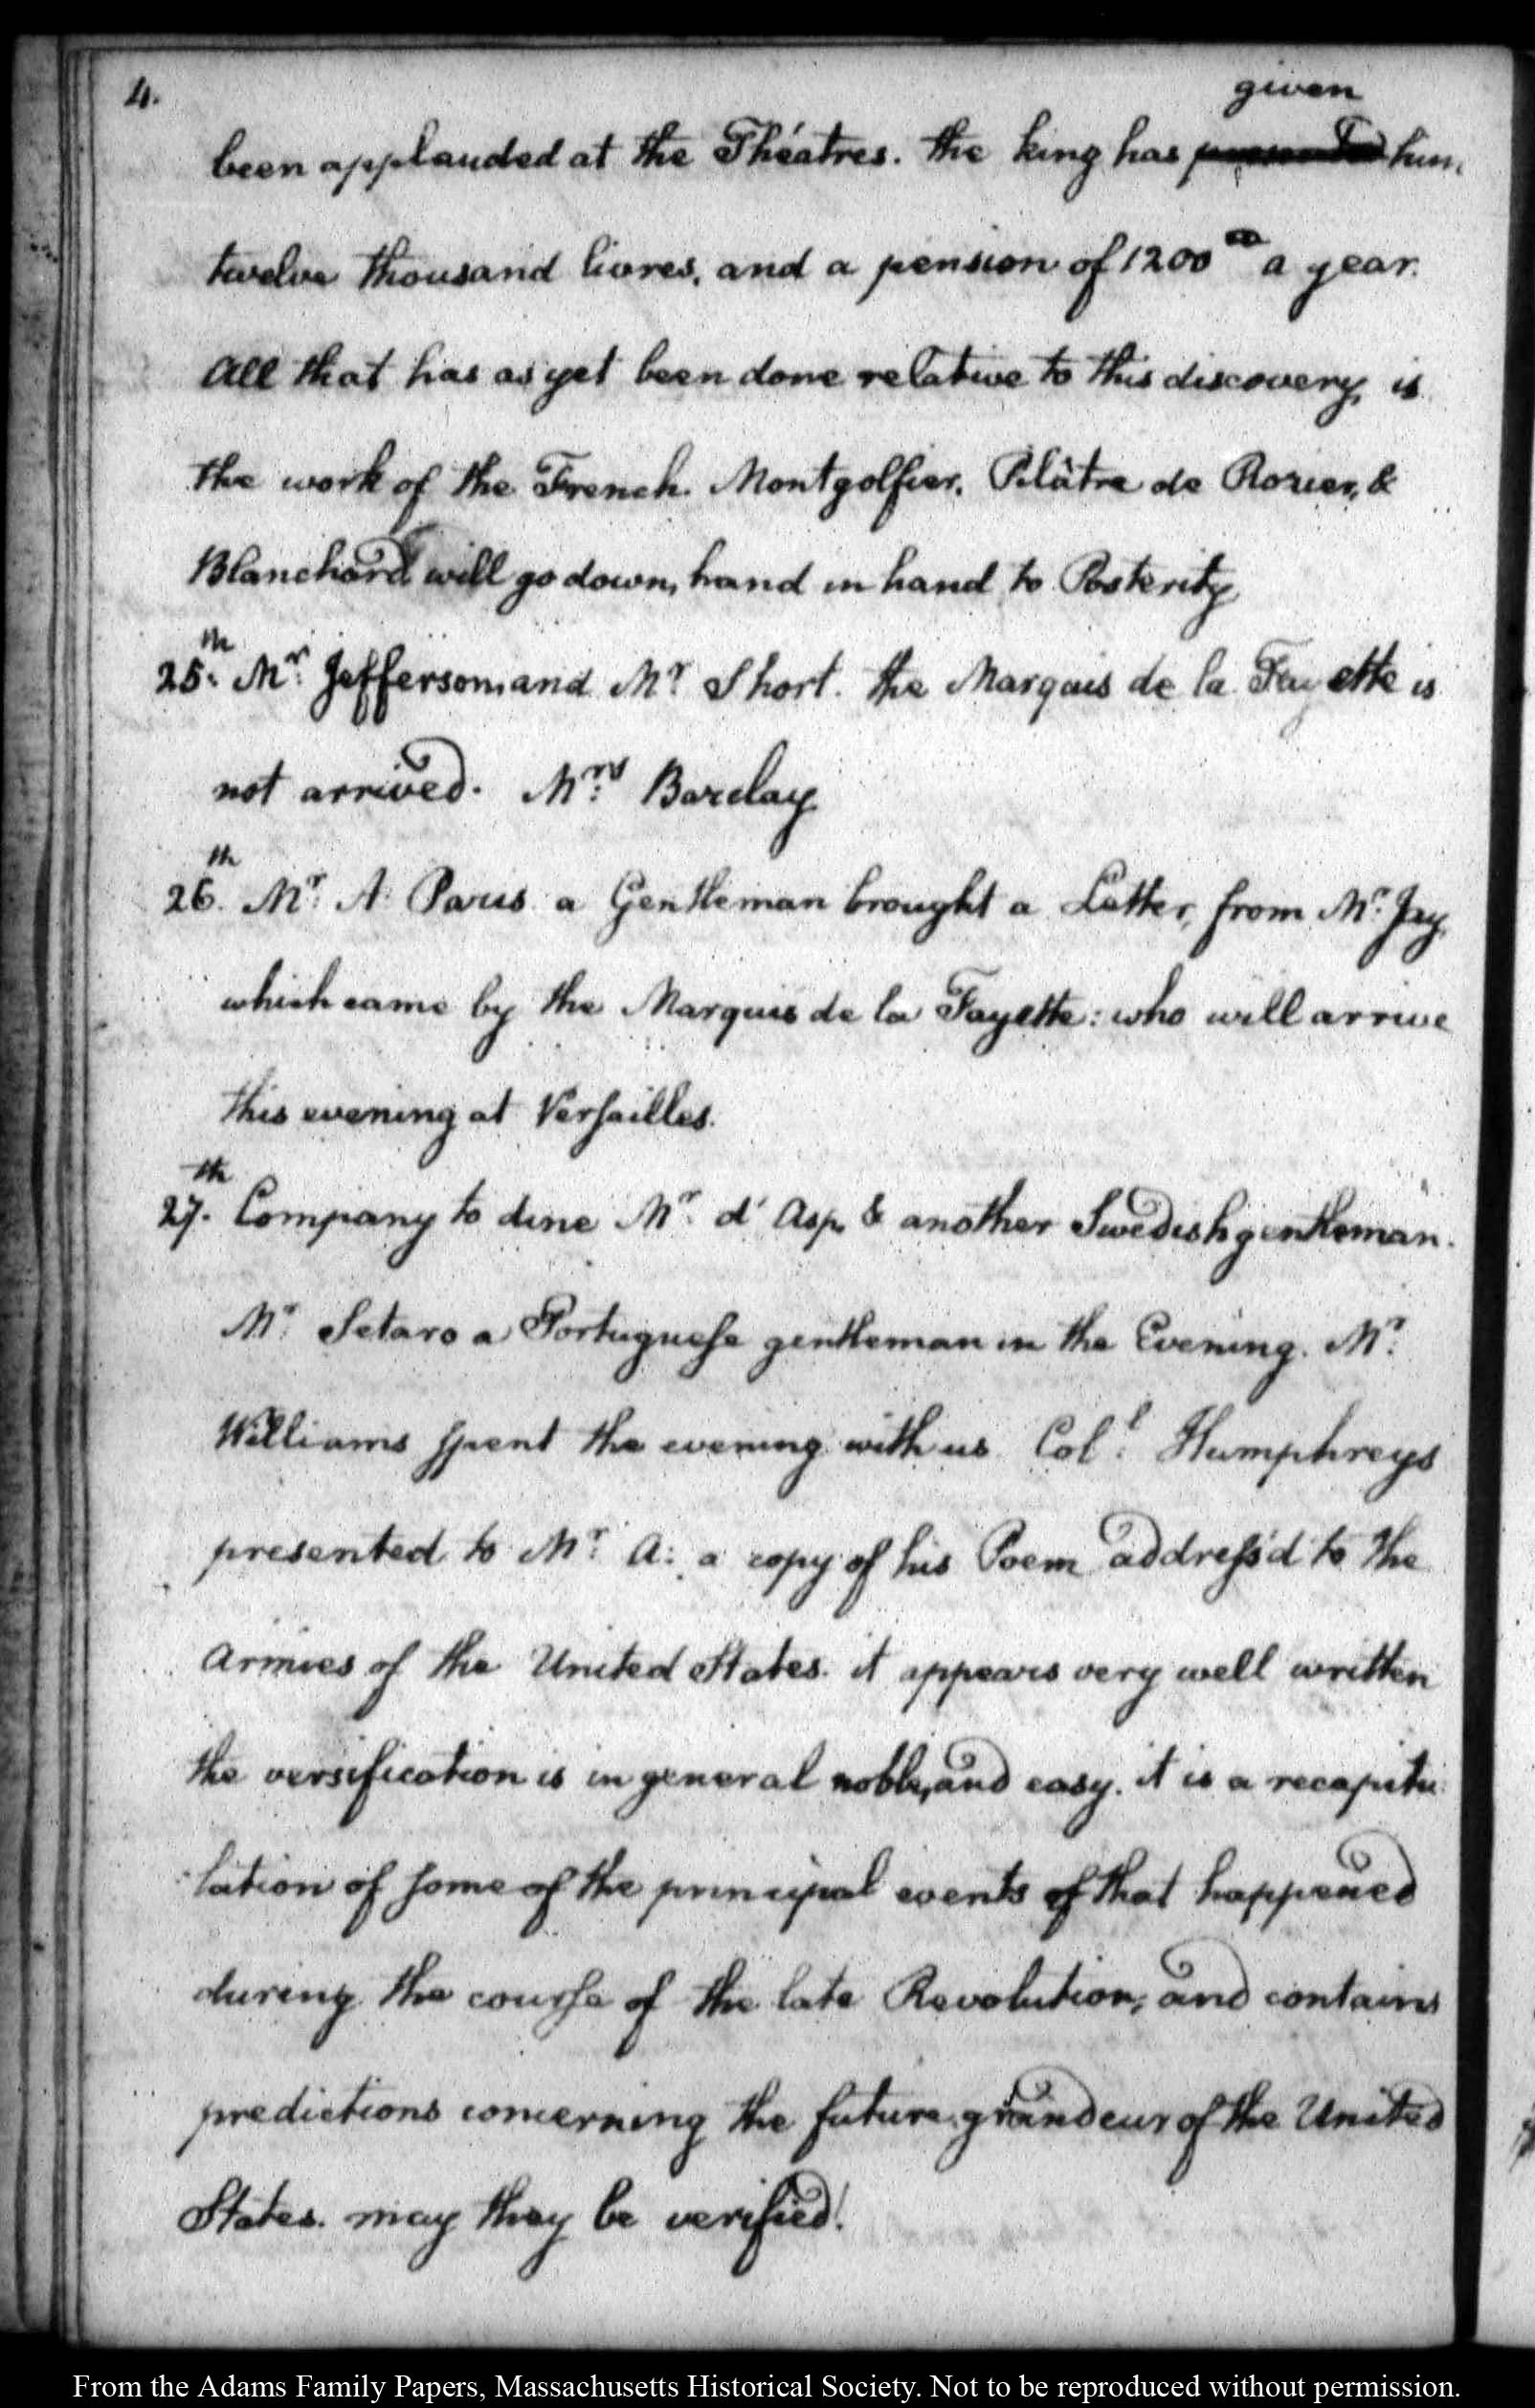 4.
given
been applauded at the Théatres. the king has presented him
twelve thousand livres, and a pension of 1200 a year.
All that has as yet been done relative to this discovery, is
the work of the French. Montgolfier, Pilâtre de Rozier, &
Blanchard will go down, hand in hand to Posterity
25th. Mr. Jefferson, and Mr. Short. the Marquis de la Fayette is
not arrived. Mrs. Barclay
26th. Mr. A. Paris a Gentleman brought a Letter, from Mr. Jay
which came by the Marquis de la Fayette: who will arrive
this evening at Verſailles.
27th. Company to dine Mr. d'Asp & another Swedish gentleman.
Mr. Setaro a Portugueſe gentleman in the Evening. Mr.
Williams ſpent the evening with us Coll. Humphreys
presented to Mr. A: a copy of his Poem addreſs'd to the
Armies of the United States. it appears very well written
the versification is in general noble, and easy. it is a recapitu
lation of ſome of the principal events of that happened
during the courſe of the late Revolution; and contains
predictions concerning the future grandeur of the United
States. may they be verified!
From the Adams Family Papers, Massachusetts Historical Society. Not to be reproduced without permission.